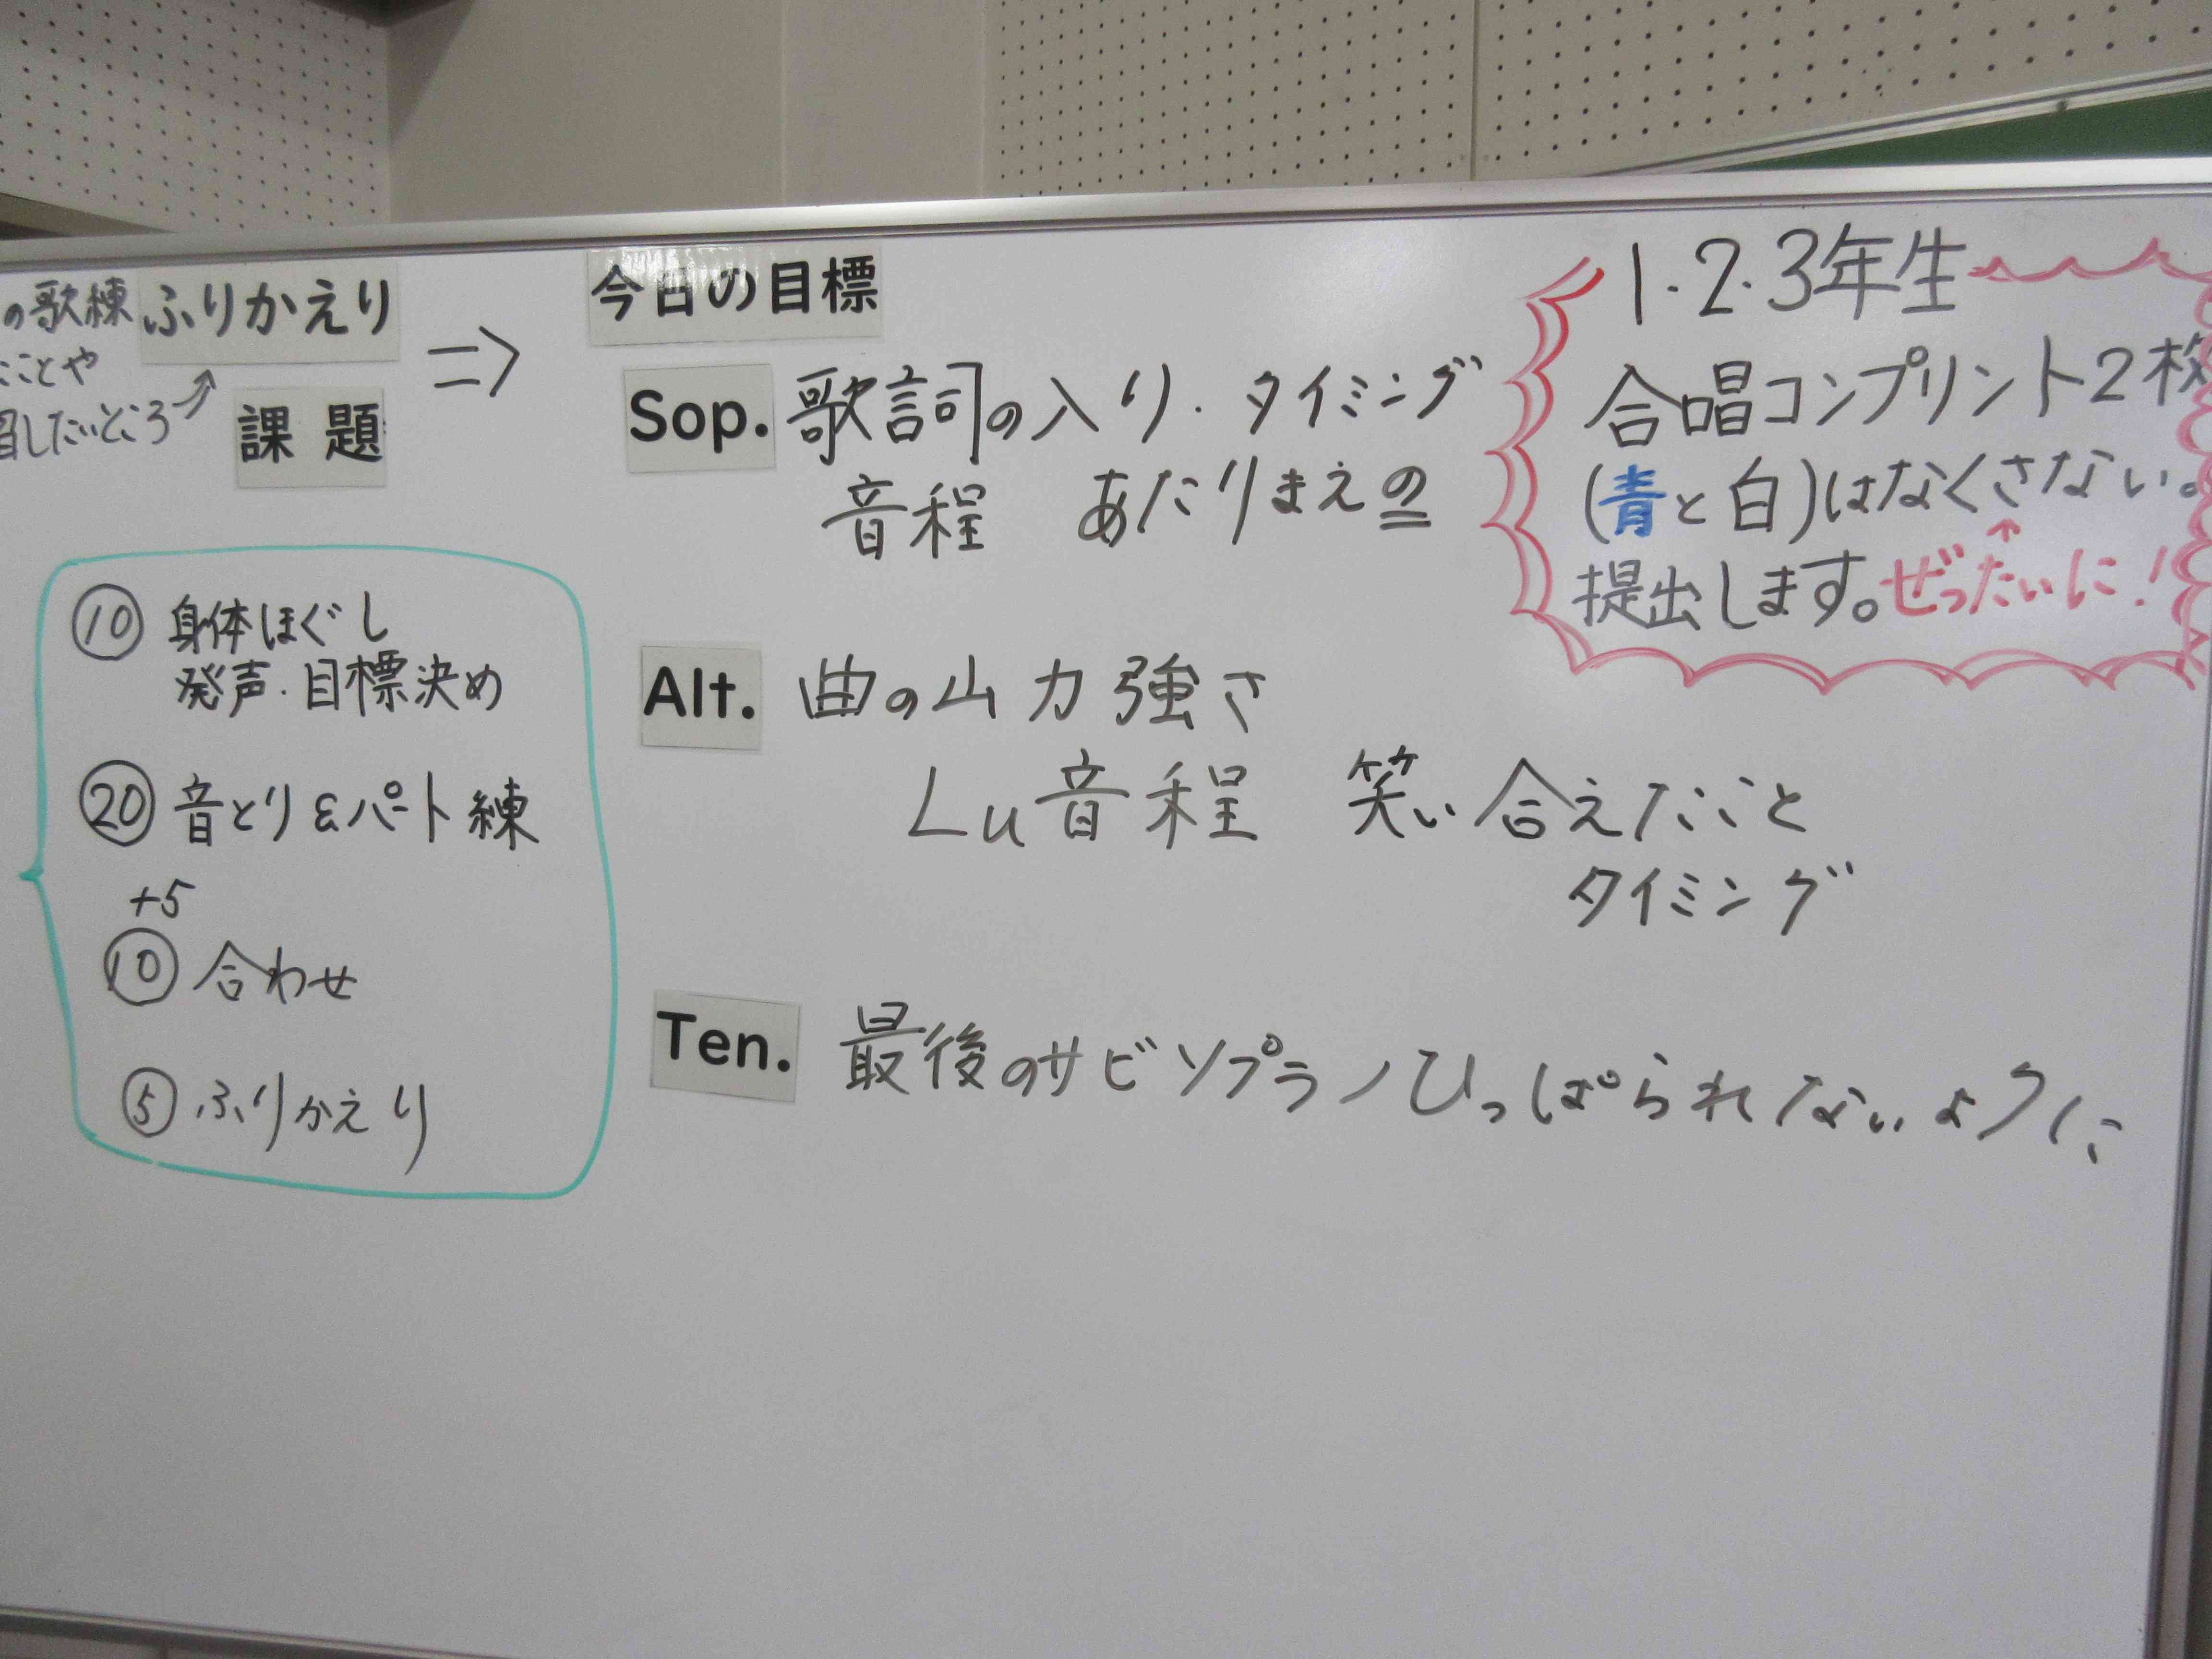 の歌練 ふりかえり
たことや
習したいところ
課題
⇒
今日の目標
Sop. 歌詞の入り・タイミング
音程 あたりまえの
1・2・3年生
合唱コンプリント2枚
(青と白)はなくさない。
提出します。ぜったいに!
⑩ 身体ほぐし
発声・目標決め
⑳ 音とり&パート練
+5
⑩ 合わせ
⑤ ふりかえり
Alt. 曲の山 力強さ
Lu音程 笑い合えたこと
タイミング
Ten. 最後のサビソプラノひっぱられないように